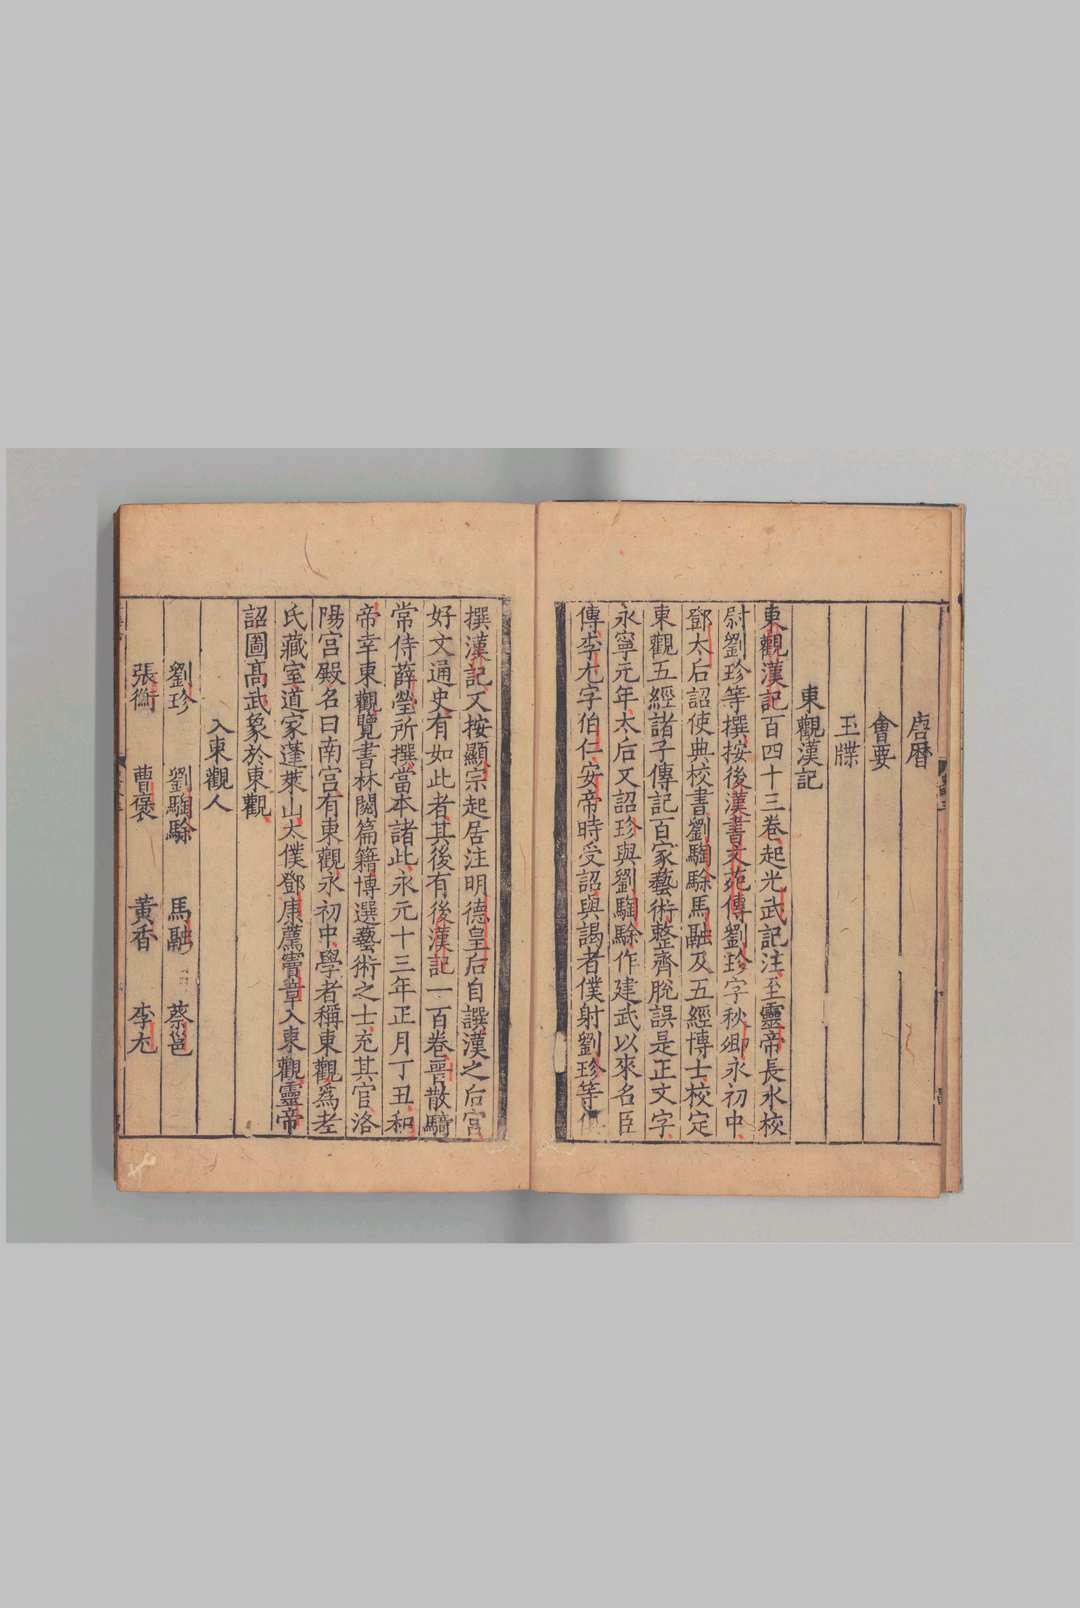 唐曆
會要
玉牒
東觀漢記
東觀漢記百四十三卷起光武記注至靈帝長水校
尉劉珍等撰按後漢書文苑傳劉珍字秋卿永初中
鄧太后詔使典校書劉騊駼馬融及五經博士校定
東觀五經諸子傳記百家藝術整齊脫誤是正文字
永寧元年太后又詔珍與劉騊駼作建武以來名臣
傳李尤字伯仁安帝時受詔與謁者僕射劉珍等俱
撰漢記又按顯宗起居注明德皇后自譔漢之后宮
好文通史有如此者其後有後漢記一百卷晉散騎
常侍薛瑩所撰當本諸此永元十三年正月丁丑和
帝幸東觀覽書林閱篇籍博選藝術之士充其官洛
陽宮殿名曰南宮有東觀永初中學者稱東觀爲老
氏藏室道家蓬萊山太僕鄧康薦竇章入東觀靈帝
詔圖高武象於東觀
入東觀人
劉珍 劉騊駼 馬融 蔡邕
張衡 曹褒 黃香 李尤